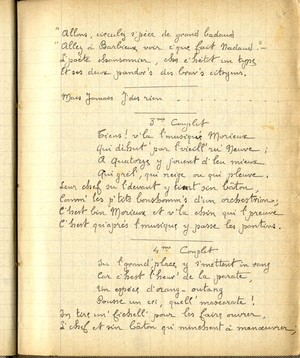 "Allons, circulez s'pèce de grand badaud
"Allez à Barbieux voir c'que fait Nadaud".-
L'poète chansonnier, ches c'hétot un type
Et ses deux pandor's des brav's citoyens.
Mais j'annons j'des rien
3me Couplet
Tiens! v'là l'musique Morieux
Qui début' par l'vieill' ru' Neuve;
A quatorze y jouent d'leu mieux
Qui grêl', qui neige ou qui pleuve.
Leur chef su l'devant y tient s'in bâton,
Comm' les p'tits bonshomm's d'un orchestrion,
C'hest bin Morieux et v'là chin qui l'preuve
C'hest qu'après l'musique y passe les pantins.
4me Couplet
Su l'grand' place y s'mettent in rang
Car chest l'heur' de la parate
Un espèc' d'orang-outang
Pousse un cri, quell' mascarate!
In tire un' fichell' pour les faire ouvrer.
L'chef et s'in bâton qui minchent à manœuvrer,